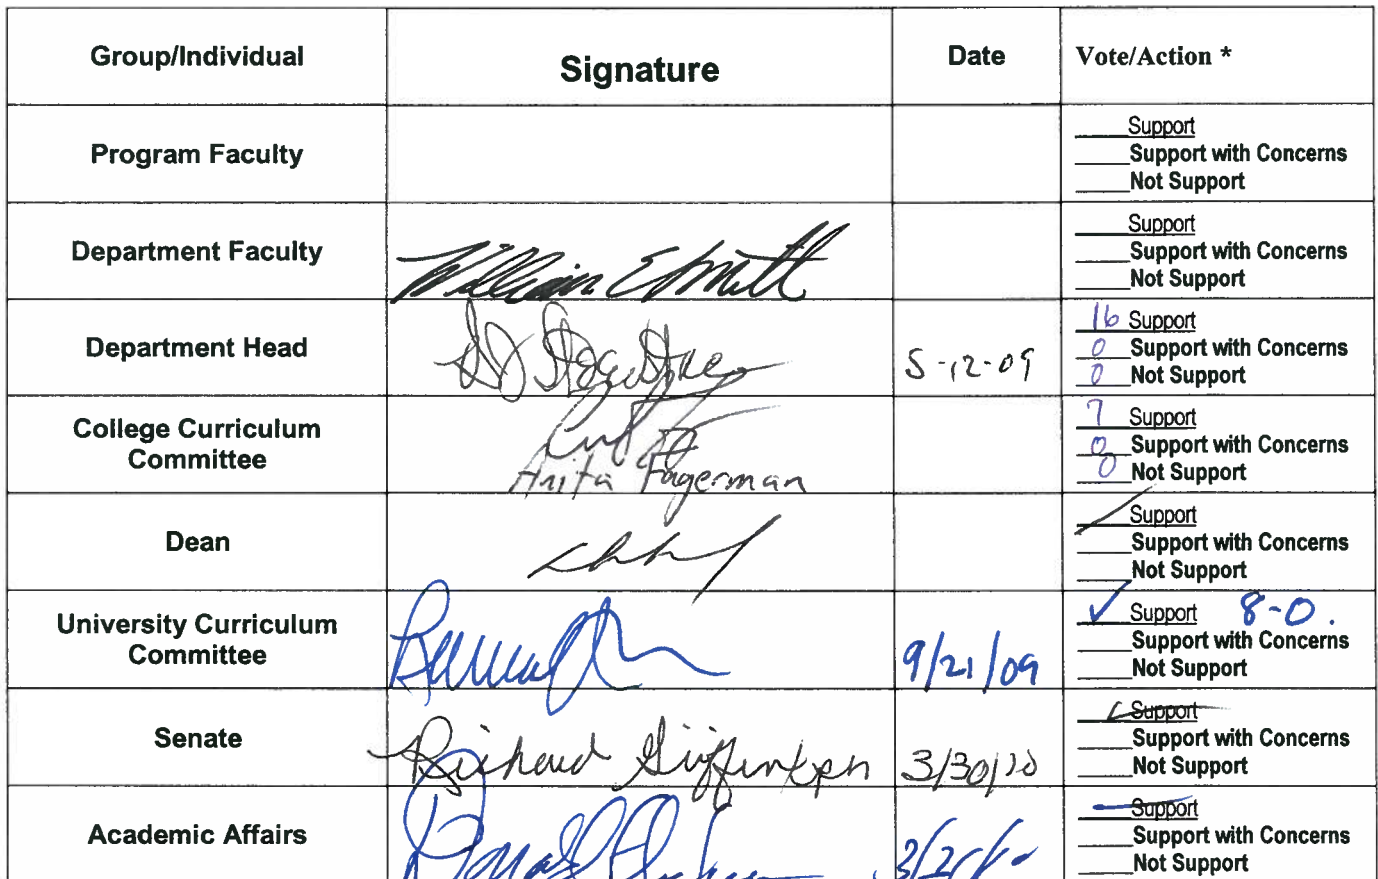 Group/Individual Signature Date Vote/Action *
Program Faculty
____Support
____Support with Concerns
____Not Support
Department Faculty William
____Support
____Support with Concerns
____Not Support
Department Head 5-12-09
16 Support
0 Support with Concerns
0 Not Support
College Curriculum
Committee
Anita Fagerman
7 Support
0 Support with Concerns
0 Not Support
Dean
____Support
____Support with Concerns
____Not Support
University Curriculum
Committee
9/21/09
✓ Support 8-0.
____Support with Concerns
____Not Support
Senate Richard 3/30/10
____Support
____Support with Concerns
____Not Support
Academic Affairs
____Support
____Support with Concerns
____Not Support